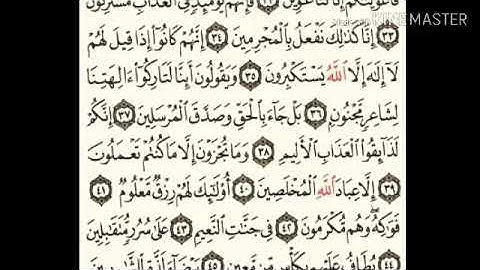 فَأَغْوَيْنَٰكُمْ إِنَّا كُنَّا غَٰوِينَ ٣٢ فَإِنَّهُمْ يَوْمَئِذٍ فِي ٱلْعَذَابِ مُشْتَرِكُونَ
KINEMASTER
٣٣ إِنَّا كَذَٰلِكَ نَفْعَلُ بِٱلْمُجْرِمِينَ ٣٤ إِنَّهُمْ كَانُوٓا۟ إِذَا قِيلَ لَهُمْ
لَآ إِلَٰهَ إِلَّا ٱللَّهُ يَسْتَكْبِرُونَ ٣٥ وَيَقُولُونَ أَئِنَّا لَتَارِكُوٓا۟ ءَالِهَتِنَا
لِشَاعِرٍ مَّجْنُونٍ ٣٦ بَلْ جَآءَ بِٱلْحَقِّ وَصَدَّقَ ٱلْمُرْسَلِينَ ٣٧ إِنَّكُمْ
لَذَآئِقُوا۟ ٱلْعَذَابِ ٱلْأَلِيمِ ٣٨ وَمَا تُجْزَوْنَ إِلَّا مَا كُنتُمْ تَعْمَلُونَ
٣٩ إِلَّا عِبَادَ ٱللَّهِ ٱلْمُخْلَصِينَ ٤٠ أُو۟لَٰٓئِكَ لَهُمْ رِزْقٌ مَّعْلُومٌ ٤١
فَوَٰكِهُ وَهُم مُّكْرَمُونَ ٤٢ فِي جَنَّٰتِ ٱلنَّعِيمِ ٤٣ عَلَىٰ سُرُرٍ مُّتَقَٰبِلِينَ
٤٤ يُطَافُ عَلَيْهِم بِكَأْسٍ مِّن مَّعِينٍ ٤٥ بَيْضَآءَ لَذَّةٍ لِّلشَّٰرِبِينَ